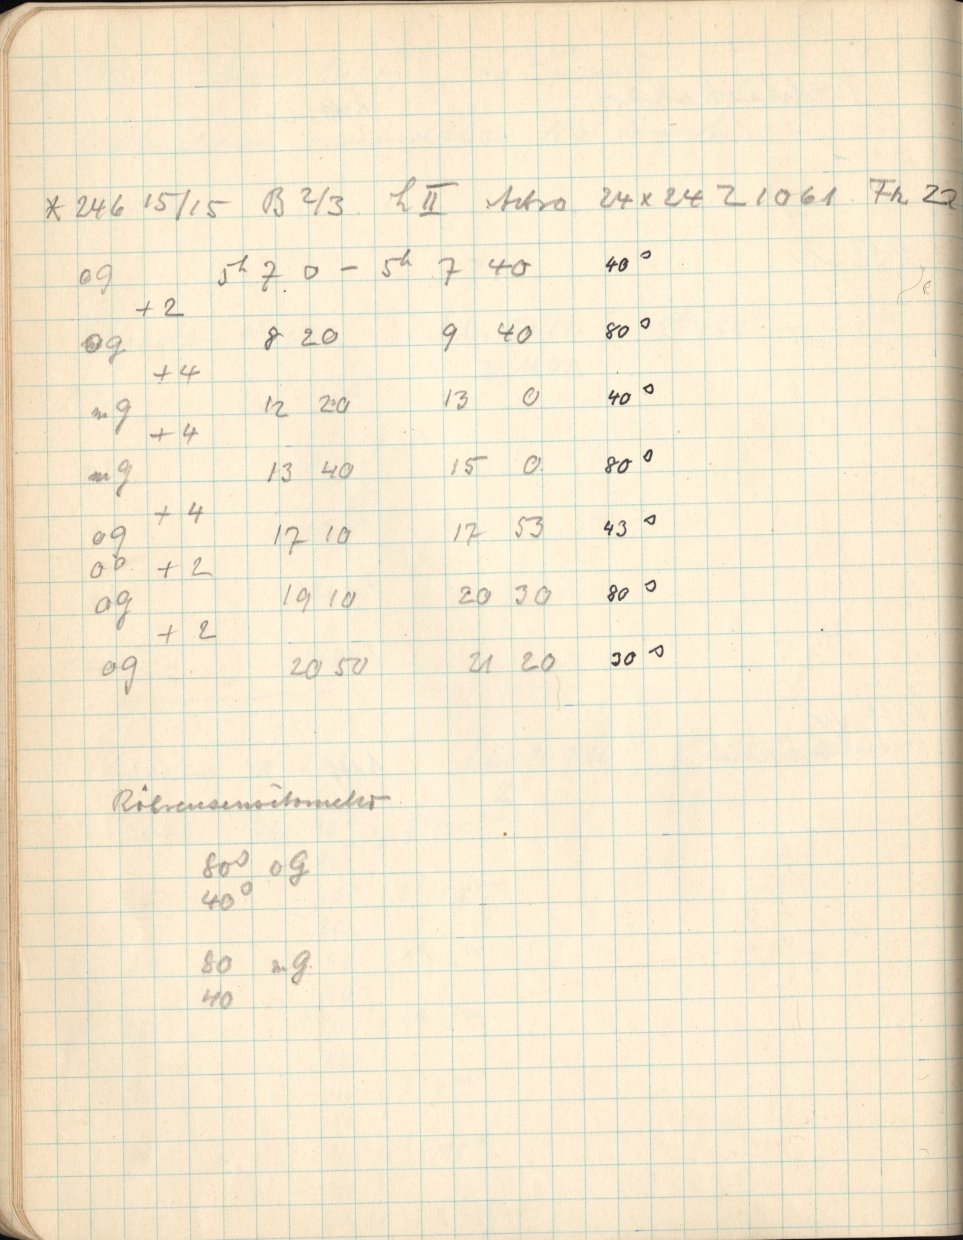 * 246 15/15 B 2/3 L II Astro 24 x 24 Z 1061 Fh 22
og 5h 7 0 - 5h 7 40 40 s
+2
og 8 20 9 40 80 s
+4
mg 12 20 13 0 40 s
+4
mg 13 40 15 0 80 s
+4
og 17 10 17 53 43 s
+2
og 19 10 20 30 80 s
+2
og 20 50 21 20 30 s
Röhrensensitometer
80s og
40s
80 mg
40